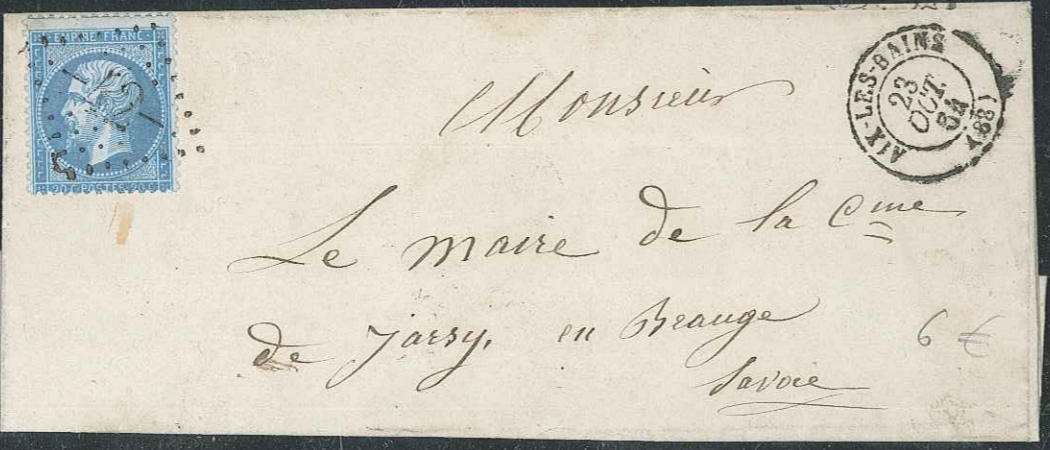 EMPIRE FRANC
20C POSTES 20C
AIX-LES-BAINS
23
OCT.
64
(88)
Monsieur
Le maire de la Cme
de Jarsy, en Beauge
Savoie
6 €